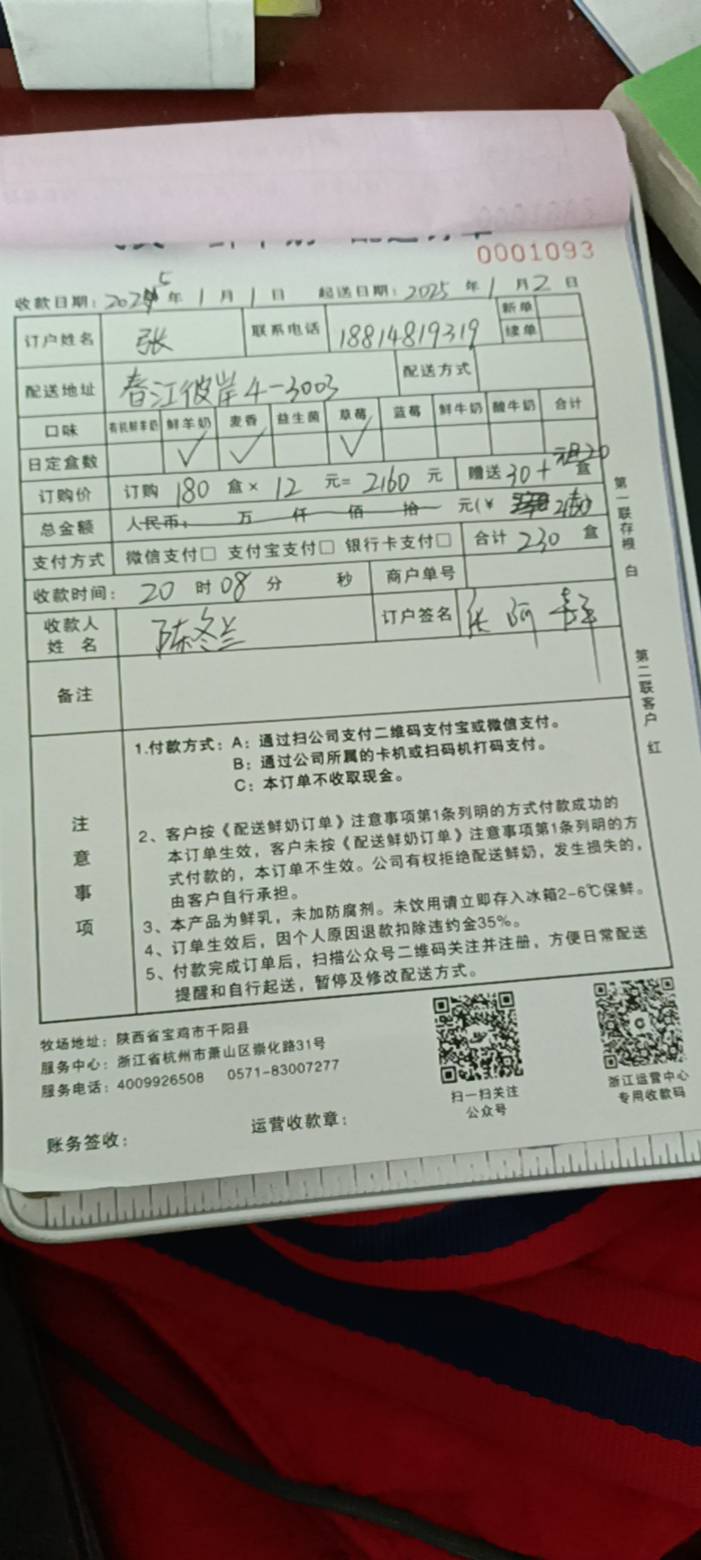 0001093
收款日期：2025年1月1日 起送日期：2025年1月2日
订户姓名 张 联系电话 18814819319 新单
续单
配送地址 春江彼岸4-3003 配送方式
口味 有机鲜羊奶 鲜羊奶 麦香 益生菌 草莓 蓝莓 鲜牛奶 酸牛奶 合计
日定盒数 ✓ ✓ ✓
订购价 订购 180 盒× 12 元= 2160 元 赠送 30+元旦20 盒
总金额 人民币： 万 仟 佰 拾 元(¥ 2160)
支付方式 微信支付□ 支付宝支付□ 银行卡支付□ 合计 230 盒
收款时间： 20 时 08 分 秒 商户单号
收款人姓名 陈冬兰 订户签名 张
备注
第一联存根 白
第二联客户 红
注意事项
1.付款方式：A：通过扫公司支付二维码支付宝或微信支付。
B：通过公司所属的卡机或扫码机打码支付。
C：本订单不收取现金。
2、客户按《配送鲜奶订单》注意事项第1条列明的方式付款成功的
本订单生效，客户未按《配送鲜奶订单》注意事项第1条列明的方
式付款的，本订单不生效。公司有权拒绝配送鲜奶，发生损失的，
由客户自行承担。
3、本产品为鲜乳，未加防腐剂。未饮用请立即存入冰箱2-6℃保鲜。
4、订单生效后，因个人原因退款扣除违约金35%。
5、付款完成订单后，扫描公众号二维码关注并注册，方便日常配送
提醒和自行起送，暂停及修改配送方式。
牧场地址：陕西省宝鸡市千阳县
服务中心：浙江省杭州市萧山区崇化路31号
服务电话：4009926508 0571-83007277
扫一扫关注
公众号
浙江运营中心
专用收款码
账务签收： 运营收款章：